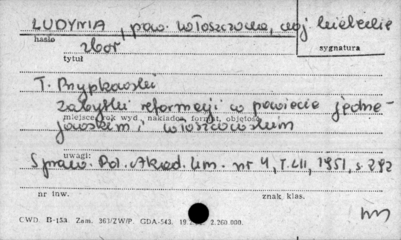 LUDYNIA, pow. Włoszczowa, woj kieleckie
hasło
zbór
sygnatura
tytuł
T. Przypkowski
Zabytki reformacji w powiecie jędrze-
miejsce, rok wyd., nakładca, format, objętość
jowskim i włoszczowskim
uwagi:
Spraw. Pol. Akad. Um. nr 4, T. LII, 1951, s. 292
nr inw.
znak klas.
CWD. Π-153. Zam. 363/ZW/P. GDA-543. 2.260 000.